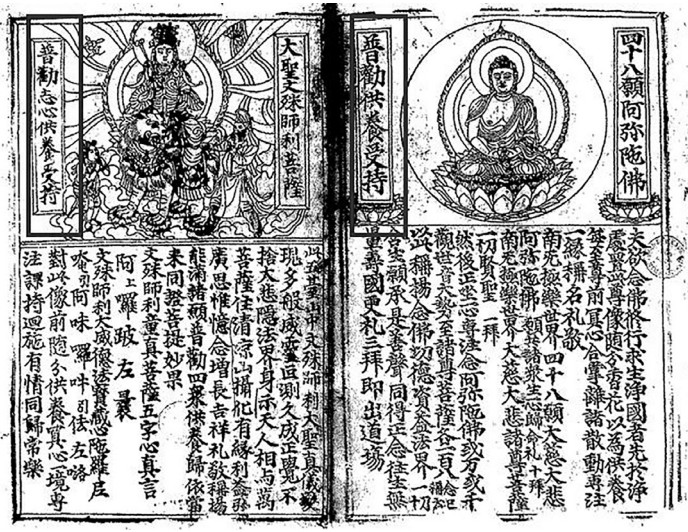 四十八願阿弥陁佛
普勸供養受持
夫欲念佛修行求生淨國者先於淨
處置此尊像随分香花以為供養
每至尊前冥心合掌離諸散動專注
一緣稱名礼敬
南无極樂世界四十八願大慈大悲
阿弥陁佛 願共諸衆生一心歸命礼十拜
南无極樂世界大慈大悲諸尊菩薩
一切賢聖 一拜
然後正坐一心專注念阿弥陁佛或万或千
觀世音大勢至諸尊菩薩各一百八
以此稱揚念佛功德資益法界一切
含生願承是善聲同得正念往生無
量壽國更礼三拜即出道場
大聖文殊師利菩薩
普勸志心供養受持
此五臺山中文殊師利大聖真儀變
現多般威靈叵測久成正覺不
捨大悲隱法界身示天人相與萬
菩薩住清涼山攝化有緣利益弘
廣思惟憶念增長吉祥礼敬稱揚
能滿諸願普勸四衆供養歸依當
來同證菩提妙果
文殊師利童真菩薩五字心真言
阿上囉跛左曩
文殊師利大威德法寶藏心陁羅尼
唵引阿味囉吽引佉左路
對此像前随分供養冥心一境專
注課持迴施有情同歸常樂